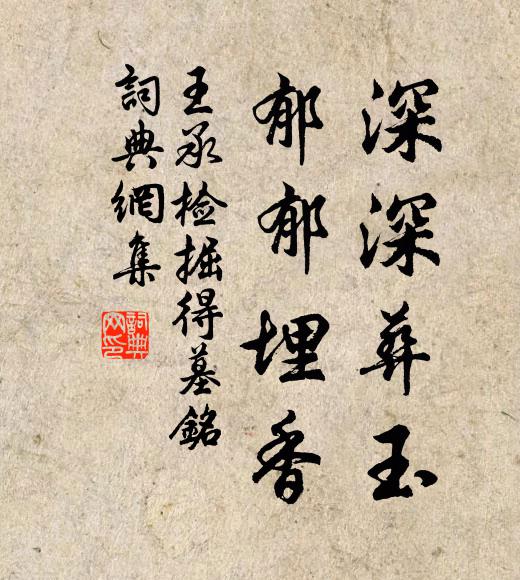 深深葬玉
郁郁埋香
王承检掘得墓銘
詞典網集
詞典网印